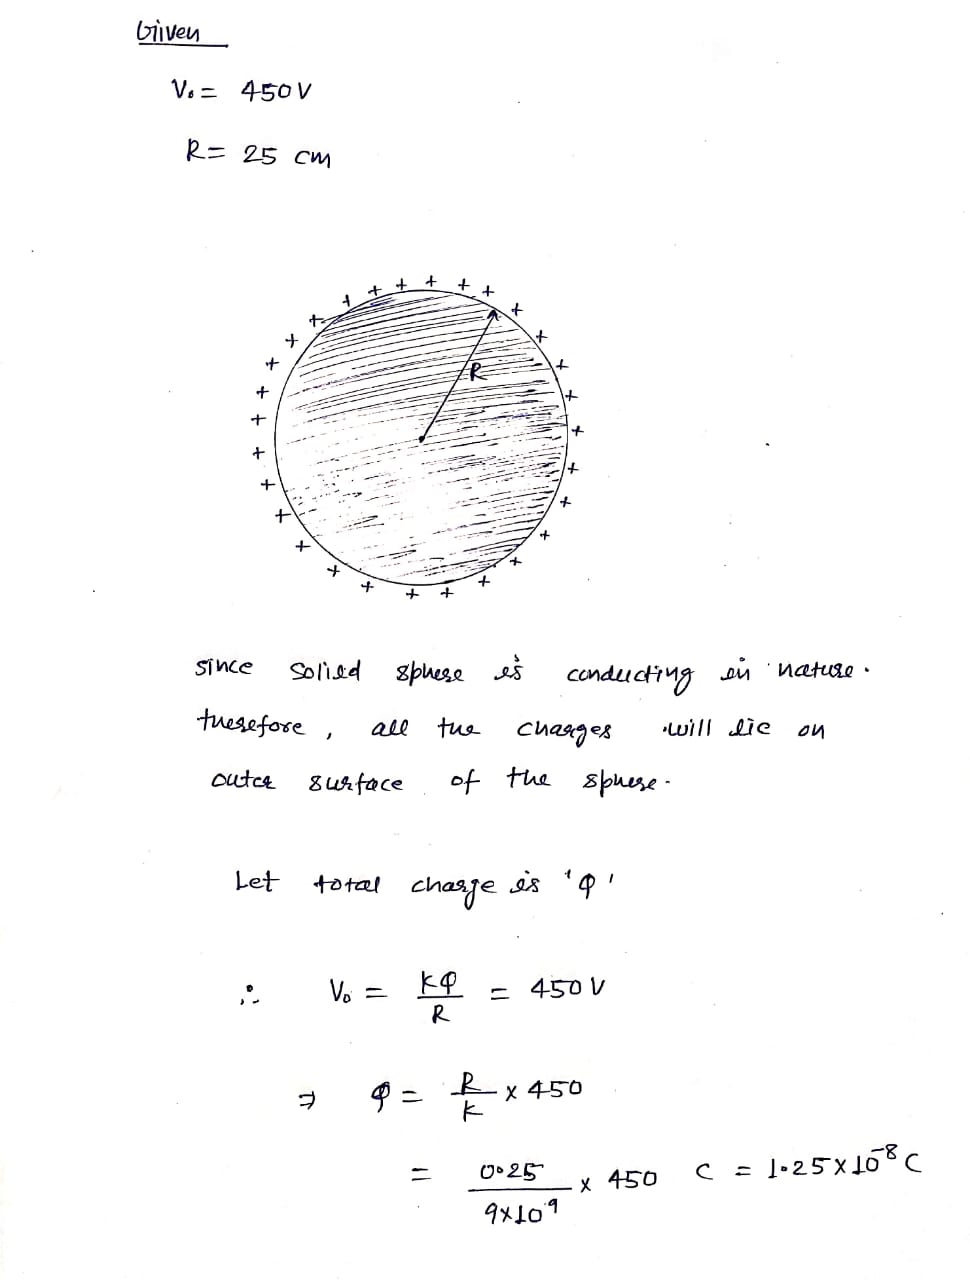 Given
V₀ = 450 V
R = 25 cm
+ + + + + + + + + + + + + + + + + + + + + + + + + + + + + + + + + +
R
since solied sphere is conducting in nature.
therefore, all the charges will lie on
outer surface of the sphere.
Let total charge is 'φ'
∴ V₀ = kφ/R = 450 V
⇒ φ = R/k × 450
= 0.25/9×10⁹ × 450 C = 1.25×10⁻⁸ C